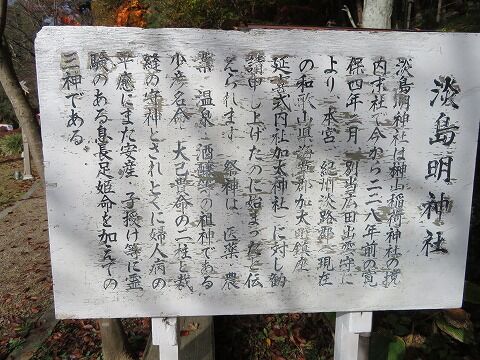 淡島明神社
淡島明神社は榊山稲荷神社の境
内末社で今から二二八年前の寛
保四年二月 別当広田出雲守に
より 本宮 紀州淡路郡(現在
の和歌山県海草郡加太町鎮座
延喜式内社加太神社)に対し勧
請申し上げたのに始まったと伝
えられます 祭神は 医薬 農
業 温泉 酒醸等の祖神である
少彦名命 大己貴命の二柱と裁
縫の守神とされとくに婦人病の
平癒にまた安産 子授け等に霊
験のある息長足姫命を加えての
三神である